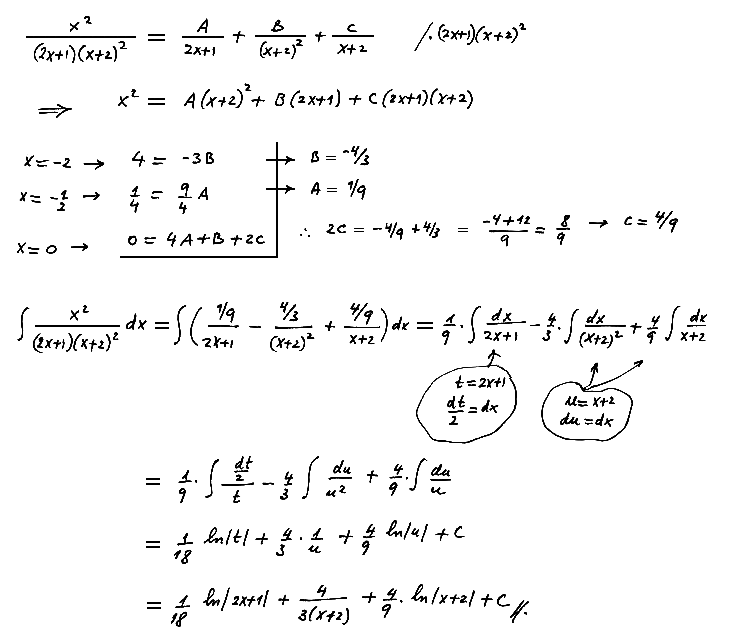 x²/((2x+1)(x+2)²) = A/(2x+1) + B/(x+2)² + C/(x+2) /·(2x+1)(x+2)²
⟹ x² = A(x+2)² + B(2x+1) + C(2x+1)(x+2)
x=-2 → 4 = -3B → B = -4/3
x=-1/2 → 1/4 = 9/4 A → A = 1/9
x=0 → 0 = 4A+B+2C ∴ 2C = -4/9 + 4/3 = (-4+12)/9 = 8/9 → C = 4/9
∫ x²/((2x+1)(x+2)²) dx = ∫( (1/9)/(2x+1) - (4/3)/(x+2)² + (4/9)/(x+2) )dx = 1/9 · ∫ dx/(2x+1) - 4/3 · ∫ dx/(x+2)² + 4/9 ∫ dx/(x+2)
t=2x+1
dt/2 = dx
u=x+2
du=dx
= 1/9 · ∫ (dt/2)/t - 4/3 ∫ du/u² + 4/9 · ∫ du/u
= 1/18 ln|t| + 4/3 · 1/u + 4/9 ln|u| + C
= 1/18 ln|2x+1| + 4/(3(x+2)) + 4/9 · ln|x+2| + C //.